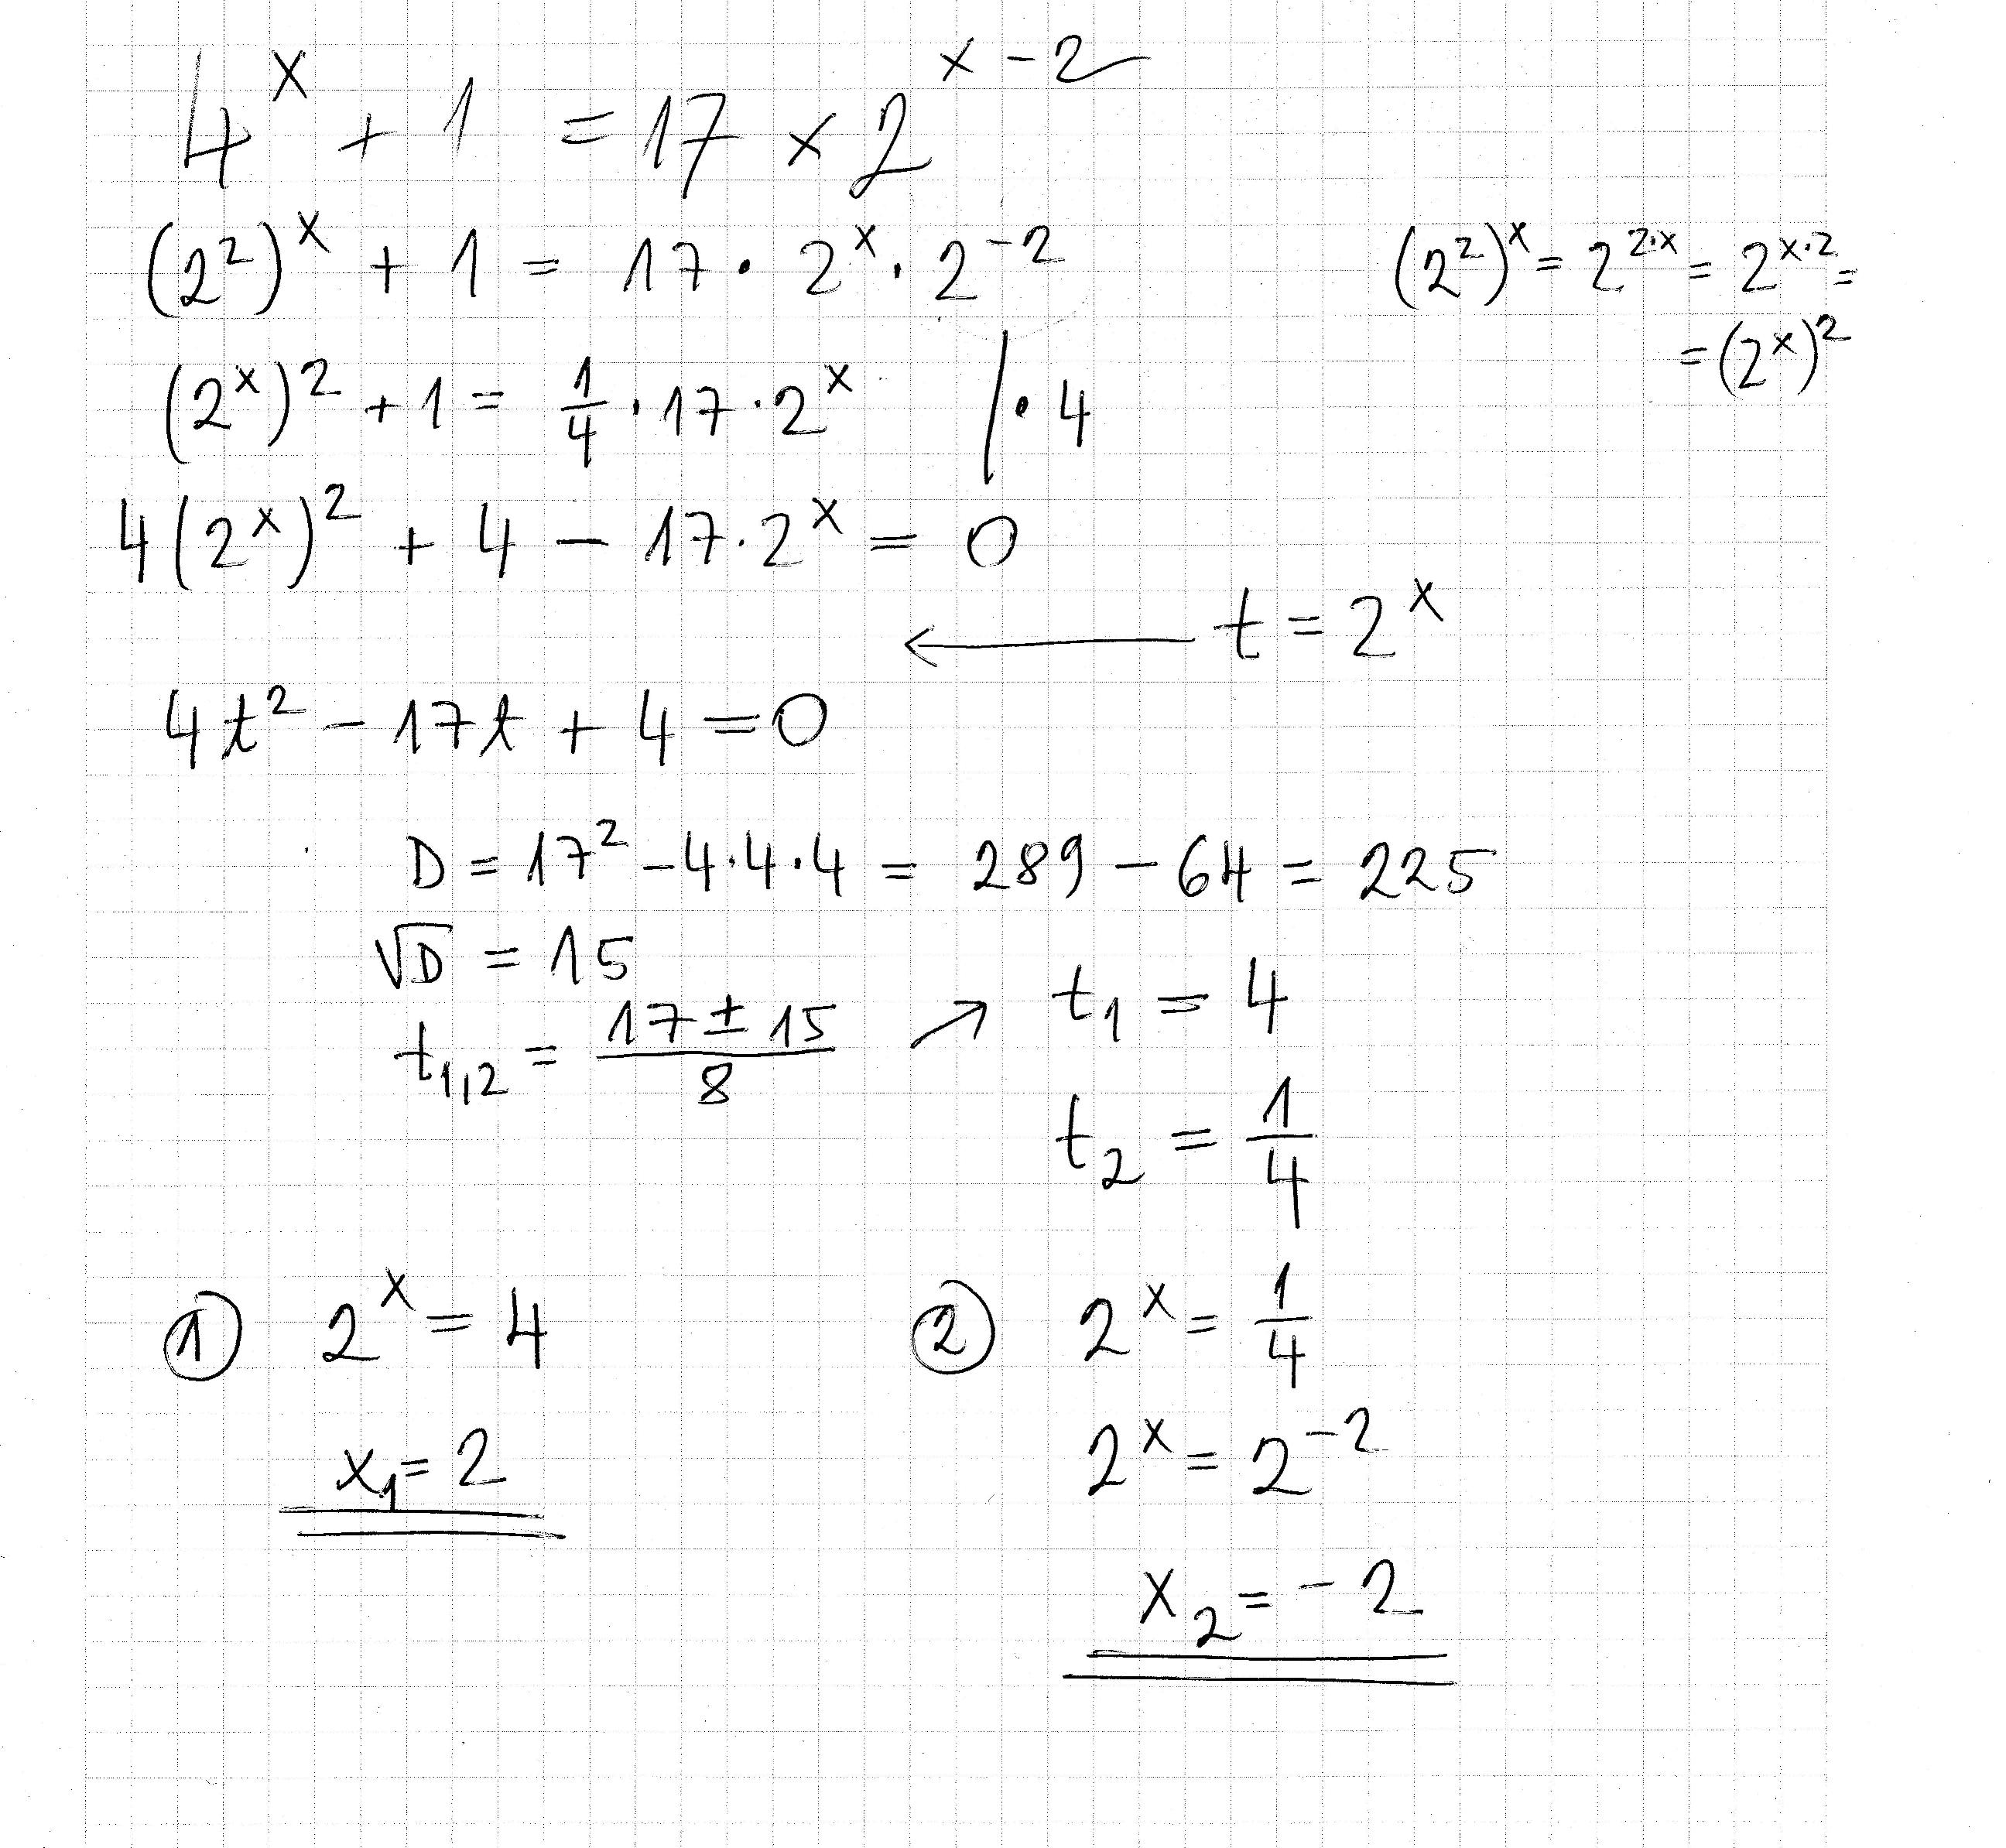 4^x + 1 = 17 × 2^(x-2)
(2²)^x + 1 = 17 · 2^x · 2^(-2)
(2²)^x = 2^(2·x) = 2^(x·2) =
= (2^x)²
(2^x)² + 1 = 1/4 · 17 · 2^x / · 4
4(2^x)² + 4 - 17 · 2^x = 0
← t = 2^x
4t² - 17t + 4 = 0
D = 17² - 4·4·4 = 289 - 64 = 225
√D = 15
t₁,₂ = (17 ± 15)/8 ↗ t₁ = 4
t₂ = 1/4
① 2^x = 4
x₁ = 2
② 2^x = 1/4
2^x = 2^(-2)
x₂ = -2